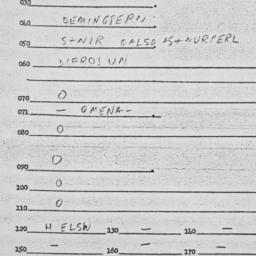 030
040 DEMINGSERN
050 S+NIR OALSO AS+NURPERL
060
070 O
071 - OMENA -
080 O
090 O
100 O
110 O
120 H ELSW 130 - 140 -
150 - 160 - 170 -